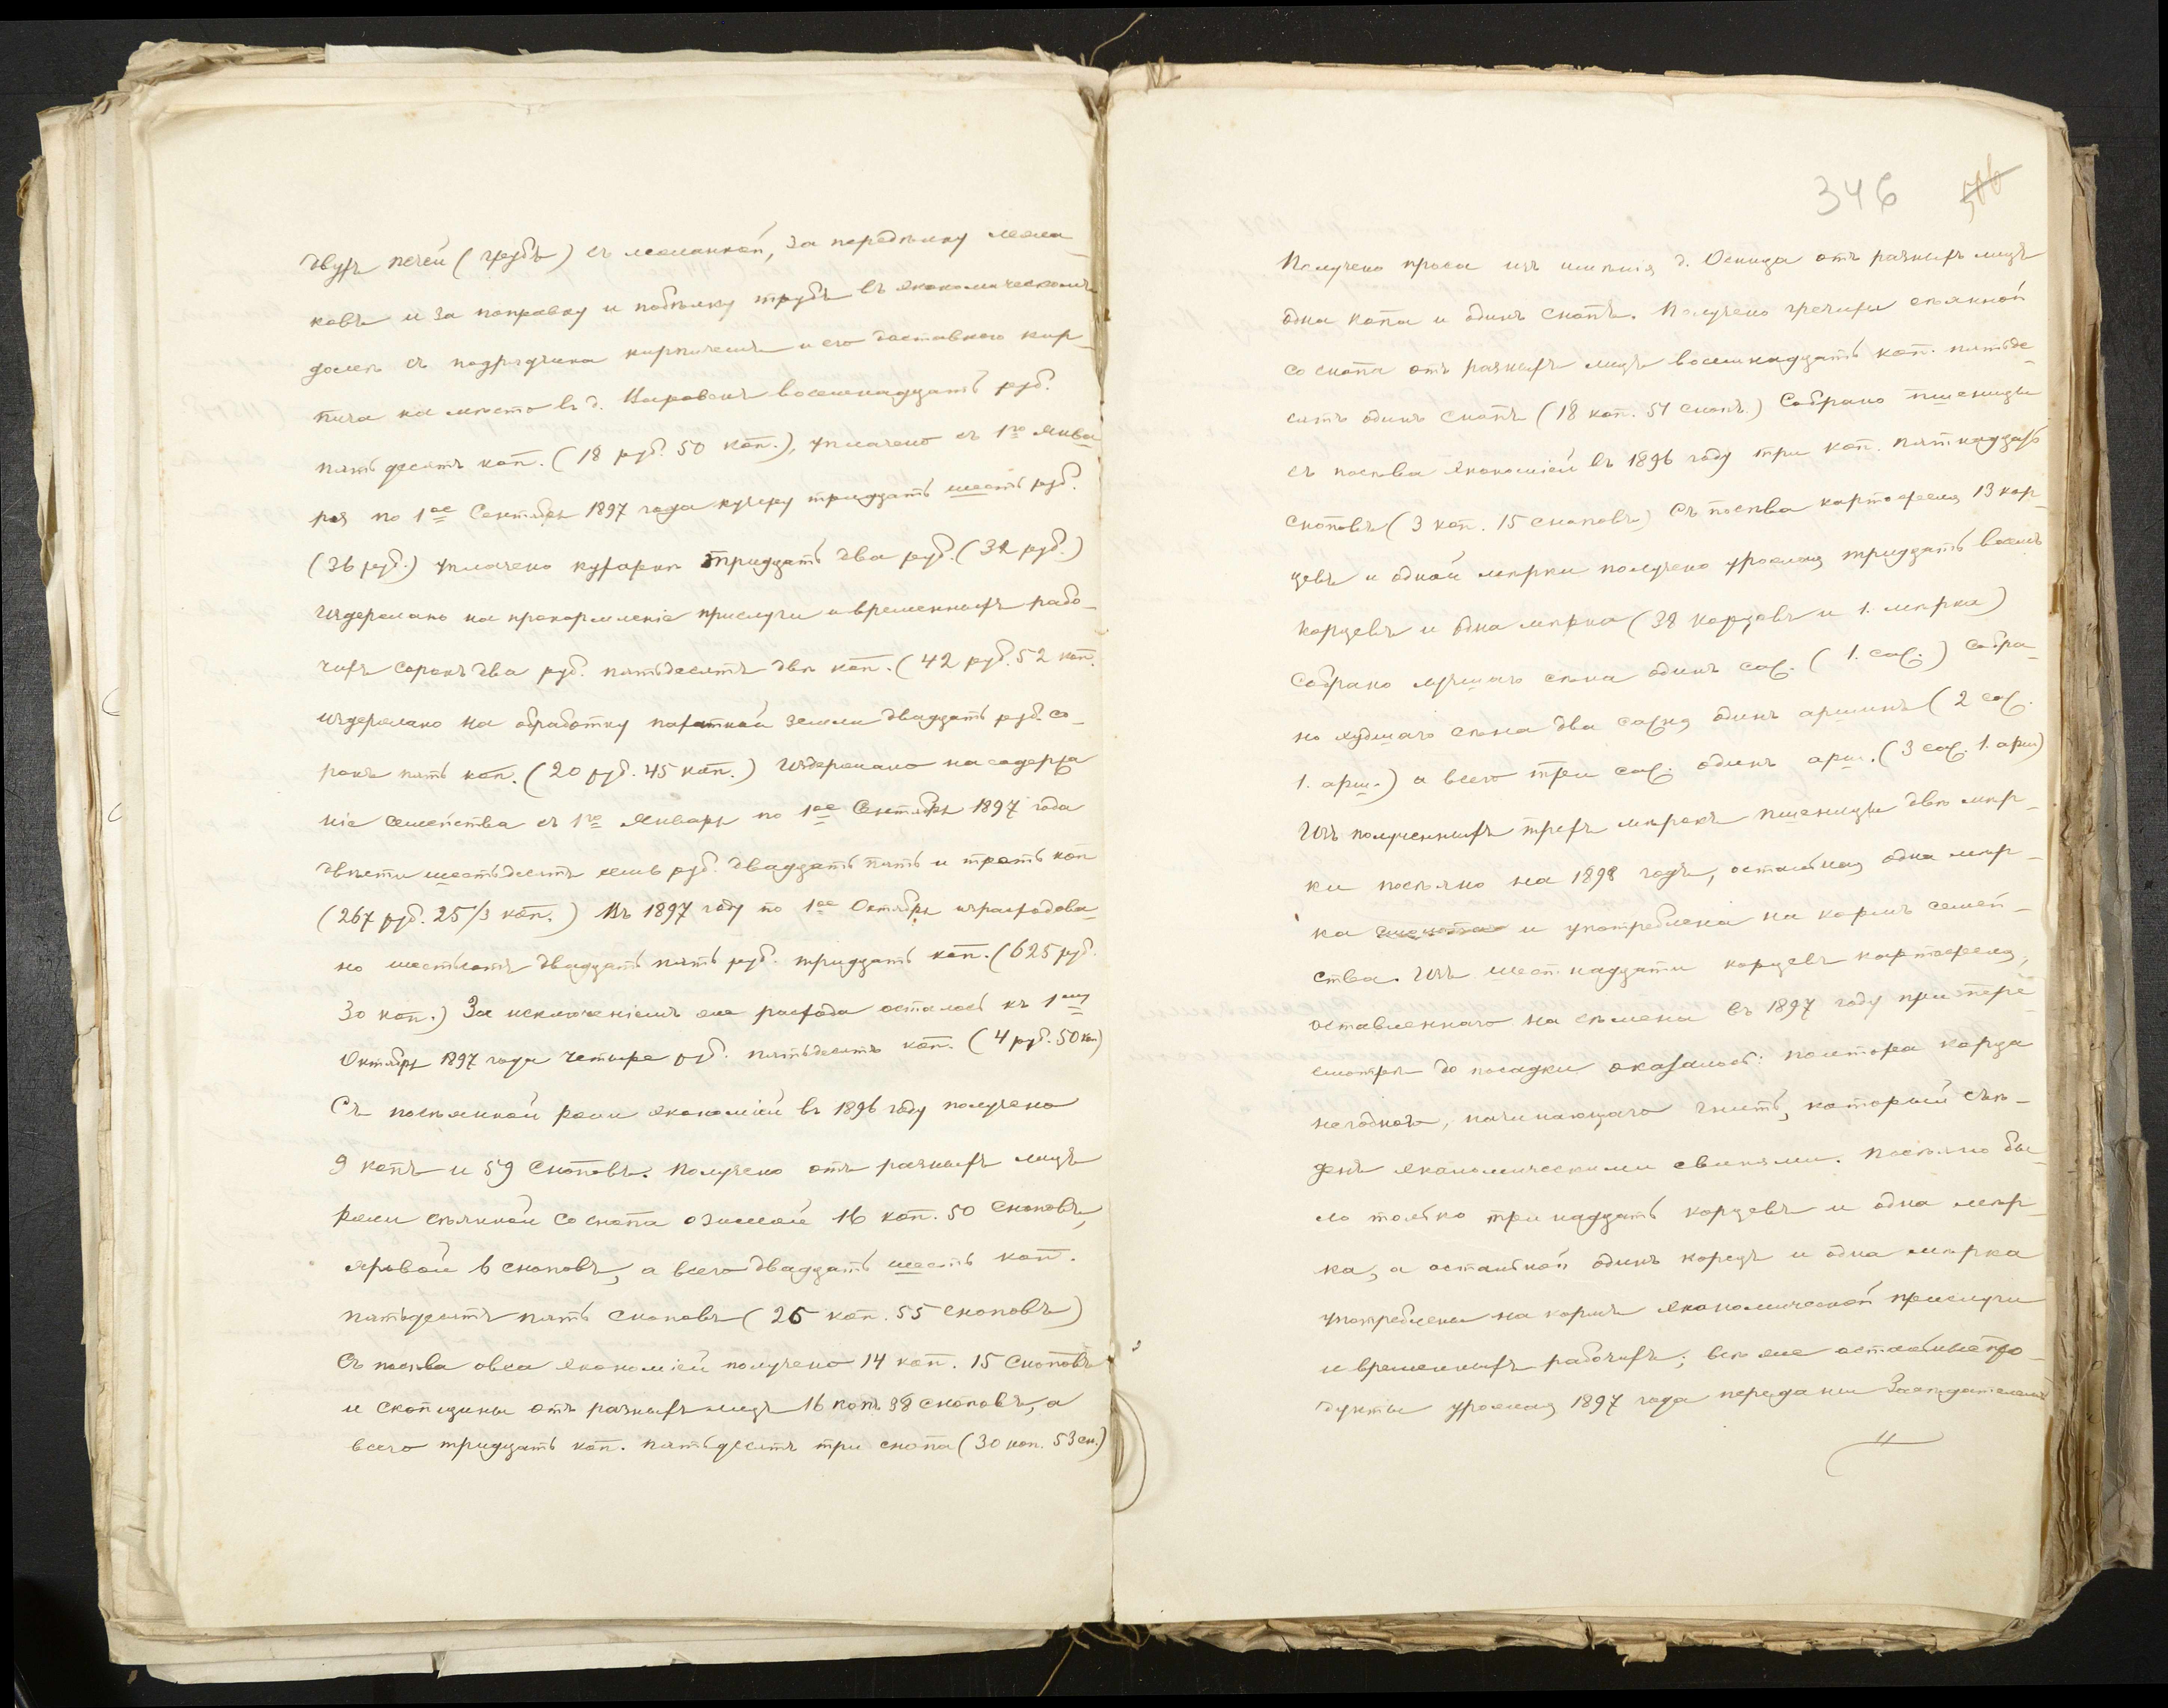 двухъ печей (грубъ) съ лежанкой, за передѣлку лежан
ковъ и за поправку и побѣлку трубъ въ экономическомъ
домѣ съ подрядчика кирпичемъ и его доставкою кир-
пича на мѣсто въ д. восемнадцать руб.
пятьдесятъ коп. (18 руб. 50 коп.), уплачено съ 1го Янва
ря по 1ое Сентября 1897 года кучеру тридцать шесть руб.
(36 руб.) уплачено кухаркѣ тридцать два руб. (32 руб.)
Издержано на прокормленіе прислуги и временныхъ рабо-
чихъ сорокъ два руб. пятьдесятъ двѣ коп. (42 руб. 52 коп.
издержано на обработку пахатной земли двадцать руб. со-
рокъ пять коп. (20 руб. 45 коп.) Издержано на содержа
ніе семейства съ 1го Января по 1ое Сентября 1897 года
двѣсти шестьдесятъ семь руб. двадцать пять и треть коп
(267 руб. 25/3 коп.) Въ 1897 году по 1ое Октября израсходова-
но шестьсотъ двадцать пять руб. тридцать коп. (625 руб.
30 коп.) За исключеніемъ же расхода осталось къ 1му
Октября 1897 года четыре руб. пятьдесятъ коп. (4 руб. 50 коп)
Съ посѣянной ржи экономіей въ 1896 году получено
9 копъ и 59 сноповъ. Получено отъ разныхъ лицъ
ржи сѣянной со снопа озимой 16 коп. 50 сноповъ,
яровой 6 сноповъ, а всего двадцать шесть коп.
пятьдесятъ пять сноповъ (26 коп. 55 сноповъ)
Съ посѣва овса экономіей получено 14 коп. 15 сноповъ
и скопщины отъ разныхъ лицъ 16 копъ 38 сноповъ, а
всего тридцать коп. пятьдесятъ три снопа (30 коп. 53 сн.)
346 506
Получено проса изъ имѣнія д. Осница отъ разныхъ лицъ
одна копа и одинъ снопъ. Получено гречихи сѣянной
со снопа отъ разныхъ лицъ восемнадцать коп. пятьде-
сятъ одинъ снопъ (18 коп. 51 снопъ.) Собрано пшеницы
съ посѣва экономіей въ 1896 году три коп. пятнадцать
сноповъ (3 коп. 15 сноповъ) Съ посѣва картофеля 13 кор-
цевъ и одной мѣрки получено урожая тридцать восемь
корцевъ и одна мѣрка (38 корцевъ и 1. мѣрка)
Собрано лучшаго сѣна одинъ саж. (1. саж.) собра-
но худшаго сѣна два сажня одинъ аршинъ (2 саж.
1. арш.) а всего три саж. одинъ арш. (3 саж. 1. арш)
Изъ полученныхъ трехъ мѣрокъ пшеницы двѣ мѣр-
ки посѣяно на 1898 годъ, остальная одна мѣр-
ка и употреблена на кормъ семей-
ства. Изъ шестнадцати корцевъ картофеля,
оставленнаго на сѣмена въ 1897 году при пере
смотрѣ до посадки оказалось: полтора корца
негоднаго, начинающаго гнить, который съѣ-
денъ экономическими свинями. Посѣяно бы-
ло только тринадцать корцевъ и одна мѣр-
ка, а остальной одинъ корецъ и одна мѣрка
употреблены на кормъ экономической прислуги
и временныхъ рабочихъ; всѣ же остальные про-
дукты урожая 1897 года переданы Засѣдателемъ